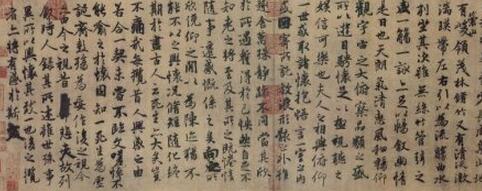 有崇山峻領茂林脩竹又有清流激
湍暎帶左右引以為流觴曲水
列坐其次雖無絲竹管弦之
盛一觴一詠亦足以暢敘幽情
是日也天朗氣清惠風和暢仰
觀宇宙之大俯察品類之盛
所以遊目騁懷足以極視聽之
娛信可樂也夫人之相與俯仰
一世或取諸懷抱悟言一室之內
或因寄所託放浪形骸之外雖
趣舍萬殊靜躁不同當其欣
於所遇暫得於己怏然自足不
知老之將至及其所之既惓情
隨事遷感慨係之矣向之所
欣俛仰之閒以為陳迹猶不
能不以之興懷況脩短隨化終
期於盡古人云死生亦大矣豈
不痛哉每攬昔人興感之由
若合一契未嘗不臨文嗟悼不
能喻之於懷固知一死生為虛
誕齊彭殤為妄作後之視今
亦由今之視昔悲夫故列
敘時人錄其所述雖世殊事
異所以興懷其致一也後之攬
者亦將有感於斯